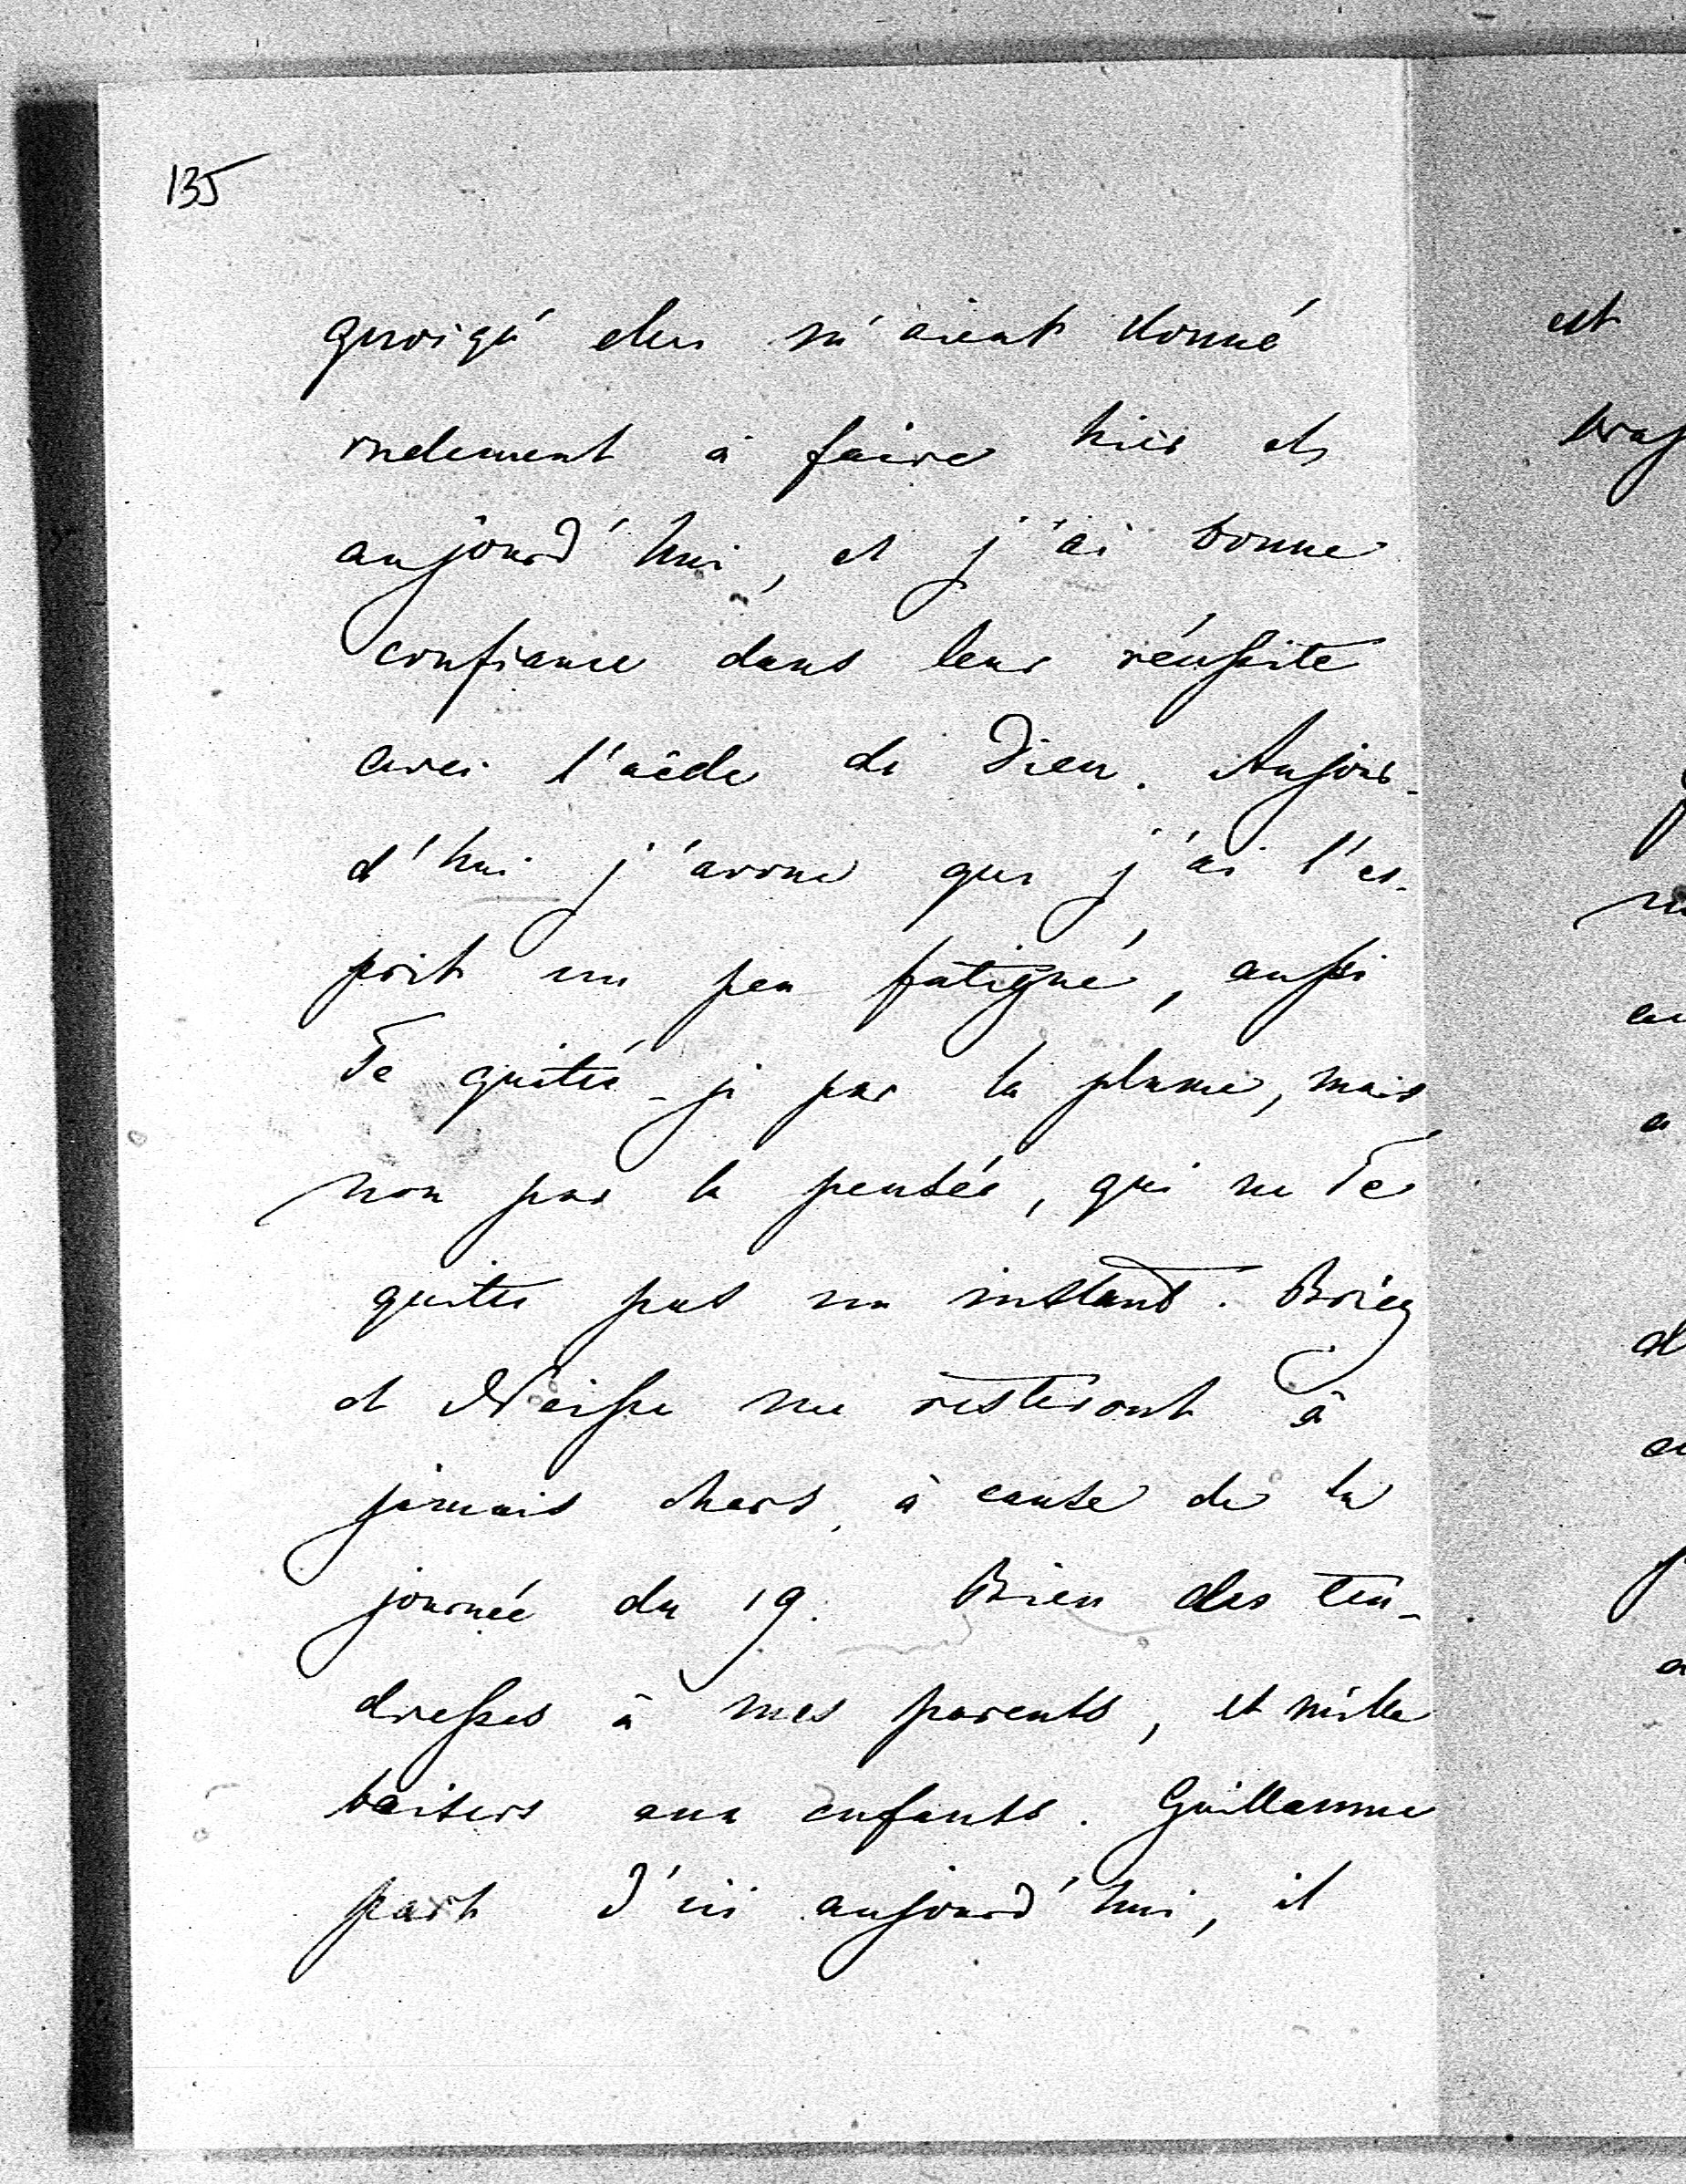 135
quoiqu'elles m'aient donné
rudement à faire hier et
aujourd'hui, et j'ai bonne
confiance dans leur réussite
avec l'aide de Dieu. Aujour-
d'hui j'avoue que j'ai l'es-
prit un peu fatigué, aussi
Te quitté-je par la plume, mais
non par la pensée, qui ne Te
quitte pas un instant. Brieg
et Neisse me resteront à
jamais chers, à cause de la
journée du 19. Bien des ten-
dresses à mes parents, et mille
baisers aux enfants. Guillaume
part d'ici aujourd'hui, il
est